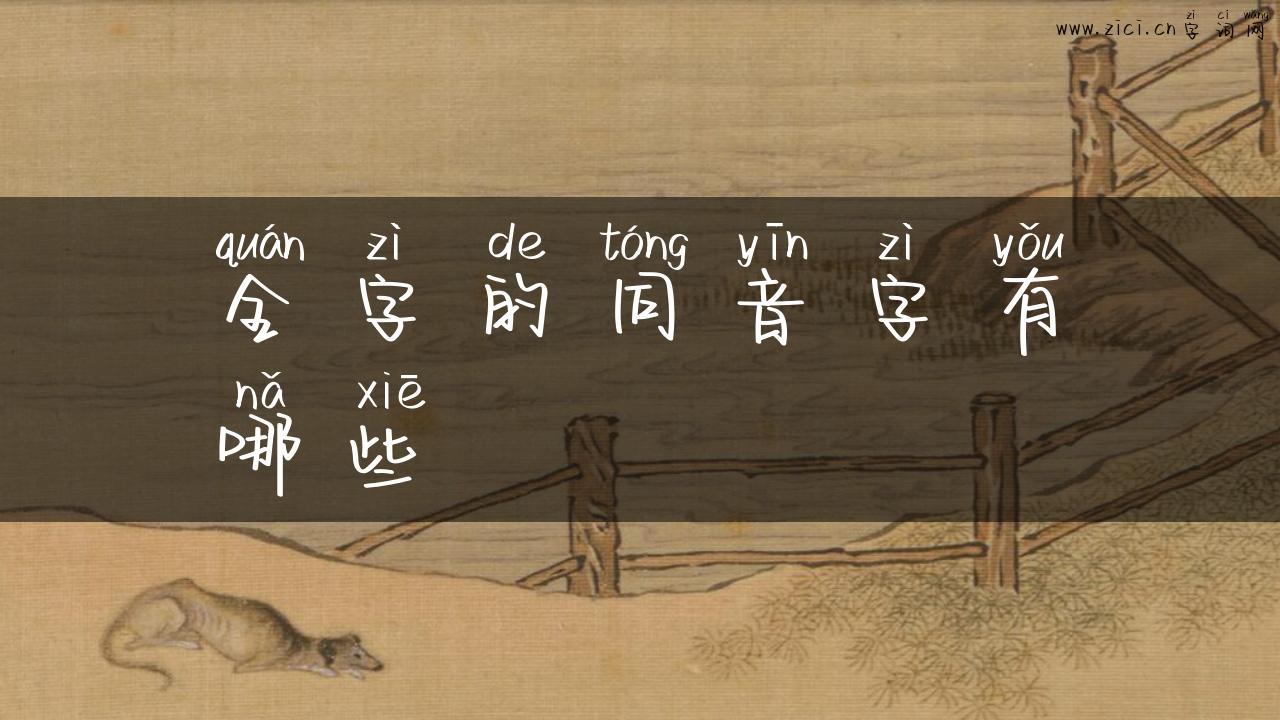 zì cì wǎng
www.zici.cn 字词网
quán zì de tóng yīn zì yǒu
全字的同音字有
nǎ xiē
哪些